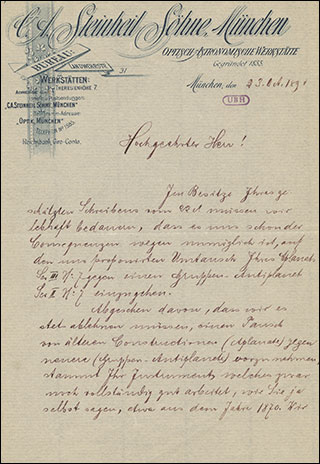 C. A. Steinheil Söhne, München
OPTISCH-ASTRONOMISCHE WERKSTÄTTE
Gegründet 1855.
BUREAU:
LANDWEHRSTR. 31
WERKSTÄTTEN:
THERESIENHÖHE 7.
"C.A. STEINHEIL SÖHNE, MÜNCHEN"
"OPTIK, MÜNCHEN"
Reichsbank Giro-Conto.
München, den 23. Oct. 189
UBH
Hochgeehrter Herr!
Im Besitze Ihres ge
schätzten Schreibens vom 22d müssen wir
lebhaft bedauern, dass es uns schon der
Consequenzen wegen unmöglich ist, auf
den uns proponirten Umtausch Ihres Aplanat
Ser III No 7 gegen einen Gruppen-Antiplanet
Ser II No 7 einzugehen.
Abgesehen davon, dass wir es
stet ablehnen müssen, einen Tausch
von älteren Constructionen (Aplanate) gegen
neuere (Gruppen-Antiplanete) vorzunehmen,
stammt Ihr Instrument, welches zwar
noch vollständig gut arbeitet, wie Sie ja
selbst sagen, etwa aus dem Jahre 1870. Wir